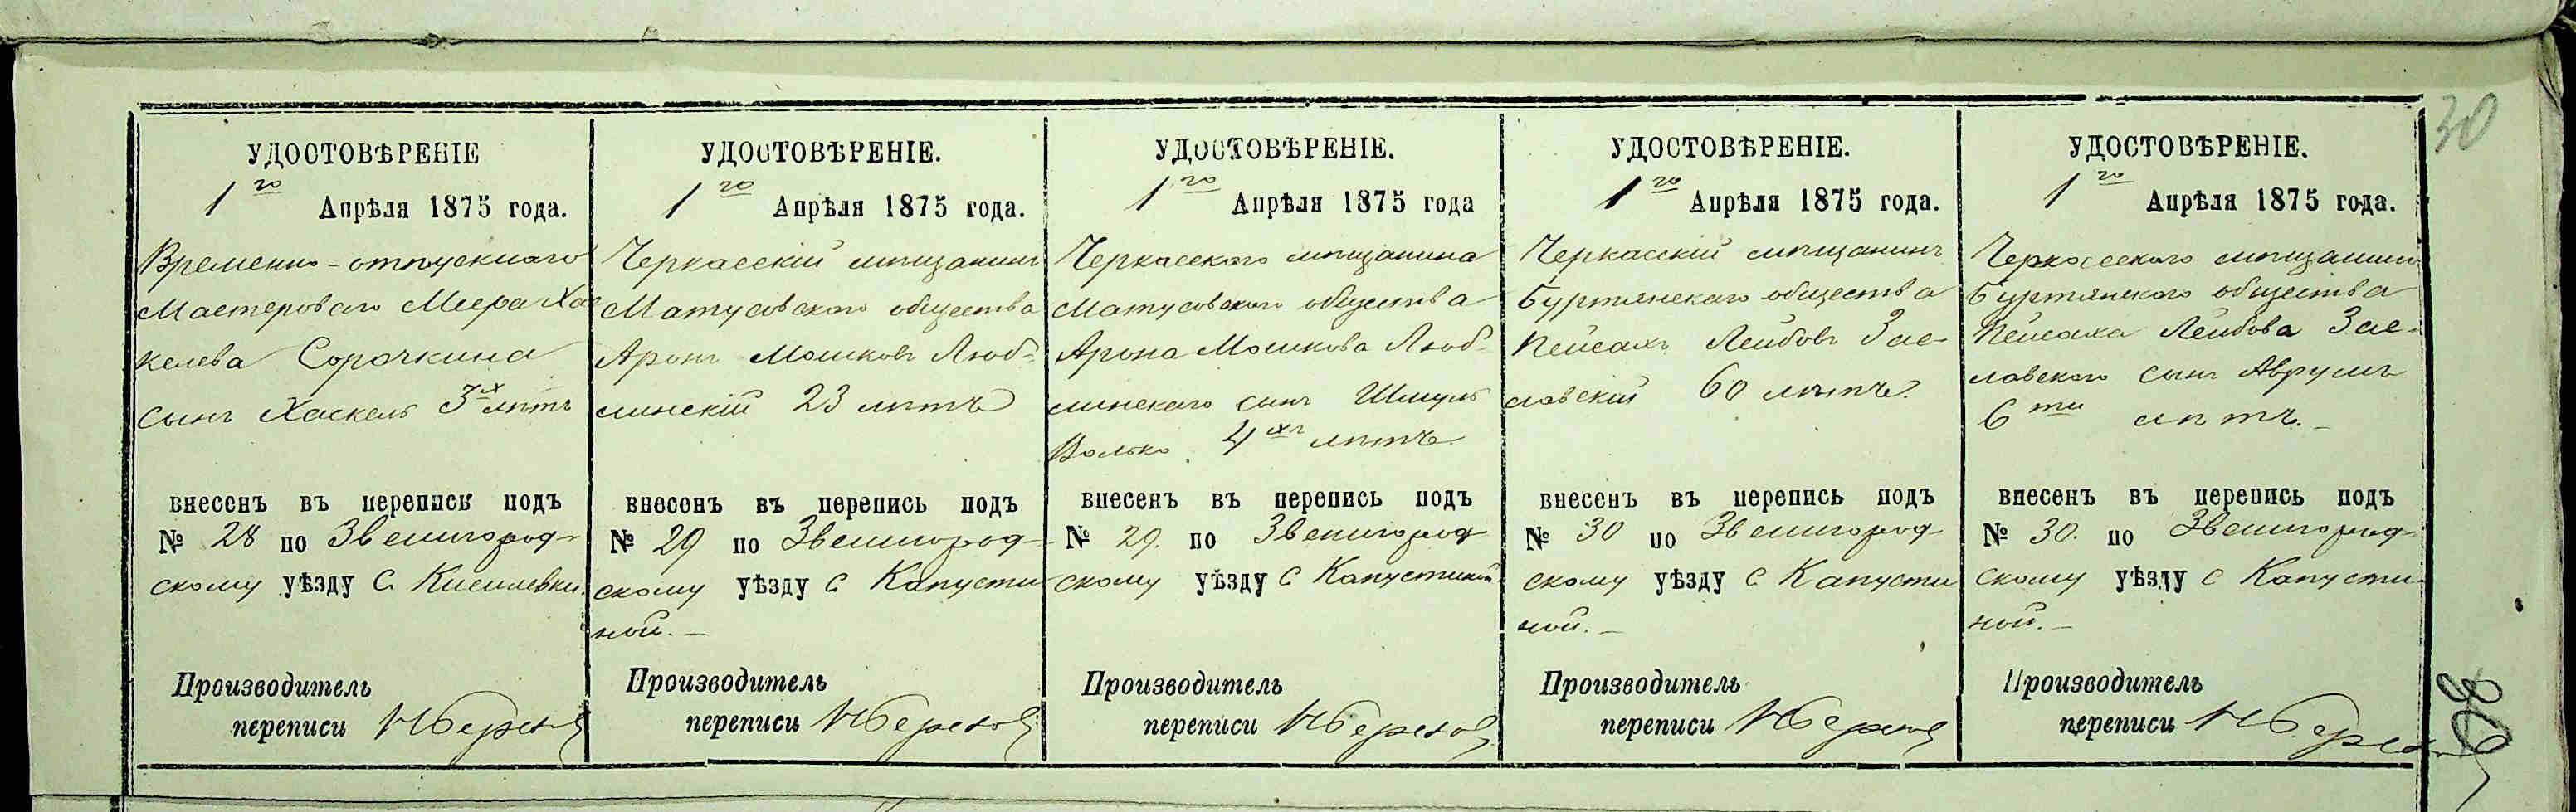 30
УДОСТОВѢРЕНІЕ
1го Апрѣля 1875 года.
Временно-отпускнаго
Мастероваго Меера Хас
келева Сорочкина
сынъ Хаскель 3х лѣтъ
внесенъ въ перепись подъ
№ 28 по Звенигород-
скому уѣзду С. Киселевки.
Производитель
переписи
УДОСТОВѢРЕНІЕ.
1го Апрѣля 1875 года.
Черкасскій мѣщанинъ
Матусовского общества
Аронъ Мошковъ Люб-
линскій 23 лѣтъ
внесенъ въ перепись подъ
№ 29 по Звенигород-
скому уѣзду С Капусти
ной. —
Производитель
переписи
УДОСТОВѢРЕНІЕ.
1го Апрѣля 1875 года
Черкасского мѣщанина
Матусовского общества
Арона Мошкова Люб-
линскаго сынъ Шмуль
Волько 4хъ лѣтъ
внесенъ въ перепись подъ
№ 29. по Звенигород
скому уѣзду С Капустиной
Производитель
переписи
УДОСТОВѢРЕНІЕ.
1го Апрѣля 1875 года.
Черкасскій мѣщанинъ
Буртянскаго общества
Пейсахъ Лейбовъ Зас-
лавскій 60 лѣтъ.
внесенъ въ перепись подъ
№ 30 по Звенигород
скому уѣзду С Капусти
ной. —
Производитель
переписи
УДОСТОВѢРЕНІЕ.
1го Апрѣля 1875 года.
Черкасского мѣщанина
Буртянского общества
Пейсаха Лейбова Зас-
лавского сынъ Аврумъ
6ти лѣтъ. —
внесенъ въ перепись подъ
№ 30. по Звенигород-
скому уѣзду С Капусти
ной. —
Производитель
переписи